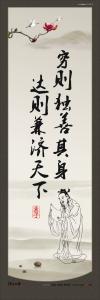 穷则独善其身
达则兼济天下